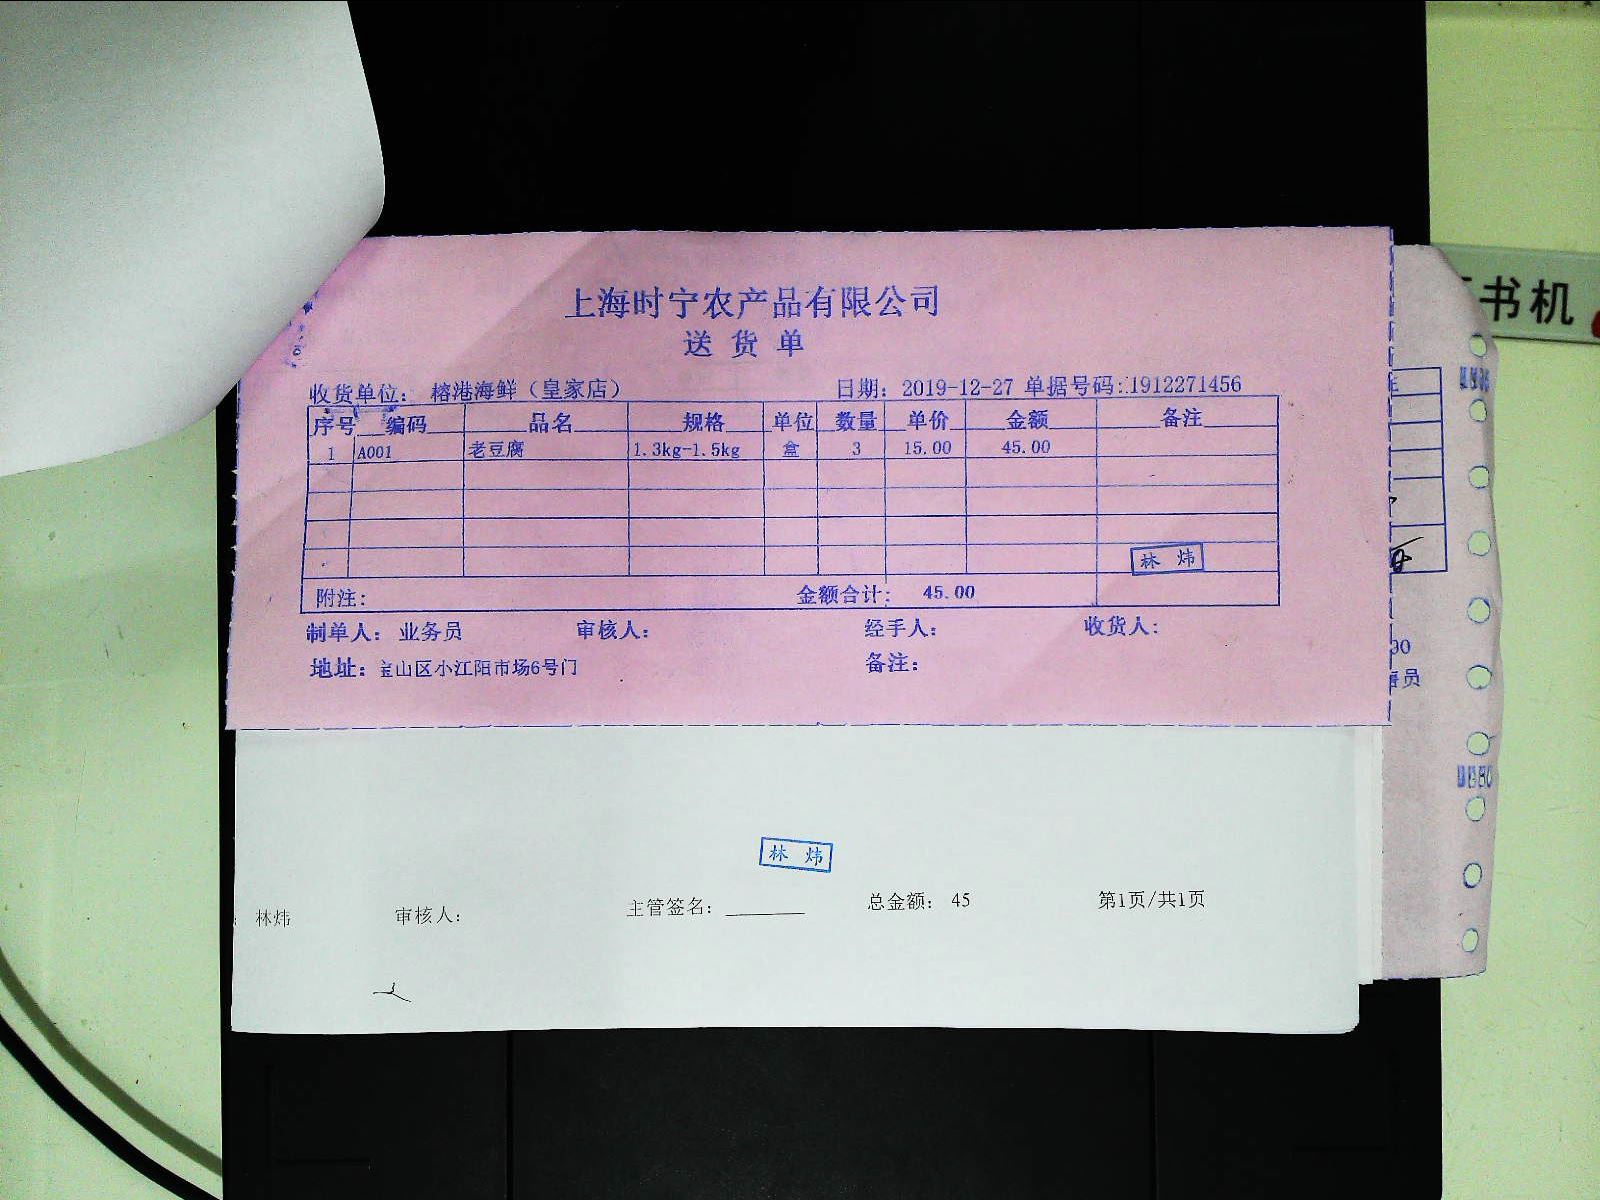 上海时宁农产品有限公司
送货单
收货单位: 榕港海鲜（皇家店） 日期: 2019-12-27 单据号码:1912271456
序号 编码 品名 规格 单位 数量 单价 金额 备注
1 A001 老豆腐 1.3kg-1.5kg 盒 3 15.00 45.00
林 炜
附注: 金额合计: 45.00
制单人: 业务员 审核人: 经手人: 收货人:
地址: 宝山区小江阳市场6号门 备注:
林 炜
林炜 审核人: 主管签名: 总金额: 45 第1页/共1页
书机
员